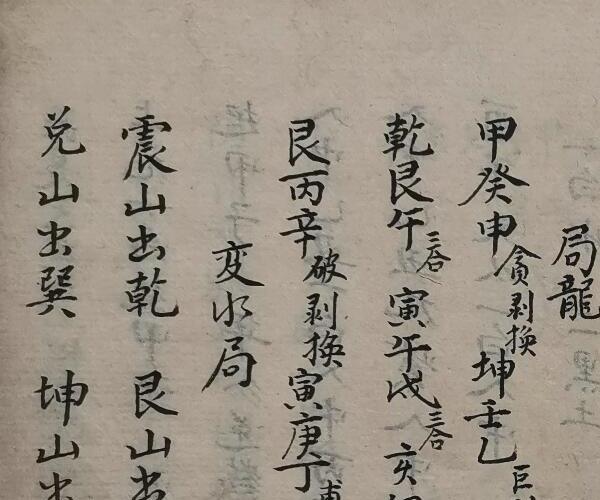 局龍
甲癸申貪剥換坤壬乙巨
乾艮午三合寅午戌三合亥
艮丙辛破剥換寅庚丁
変水局
震山出乾 艮山出
兌山出巽 坤山出